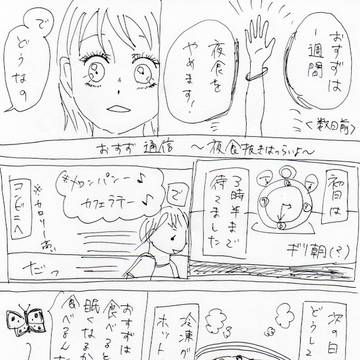 おすずは
一週間
夜食を
やめます!
<数日前>
で
どうなの
おすず通信 ～夜食抜きはつらいよ～
初日は
7時半まで
待てました
ギリ朝(?)
で
メロンパンー♪
カフェラテー♪
※カロリー高い
コンビニへ
だっ
次の日
どうして
冷凍
ホット
おすずは
食べると
眠くなるか
食べるん